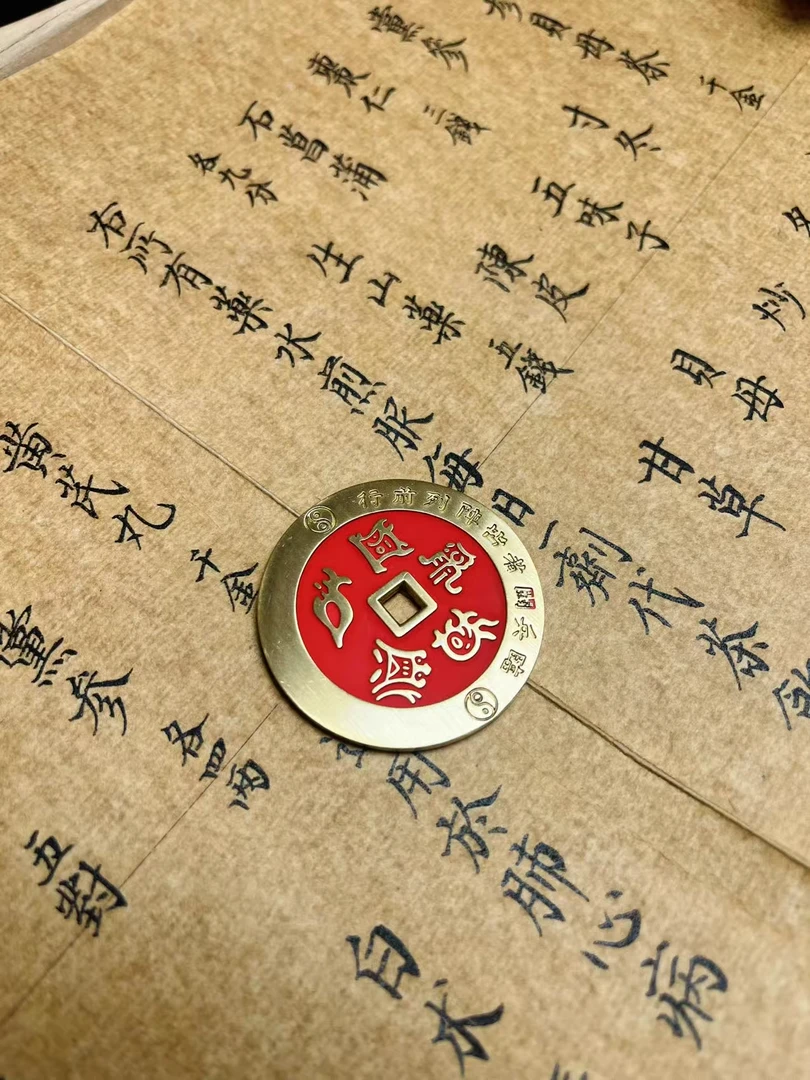 參貝母茶 千金
黨參 寸冬
棗仁 三錢 五味子 炒
石菖蒲 陳皮 貝母
各九分 生山藥 五錢 甘草
右所有藥水煎服每日一劑代茶飲
用於肺心病
黃芪丸 千金
黨參 各四兩 白朮
五對
臨兵鬥者皆陣列前行